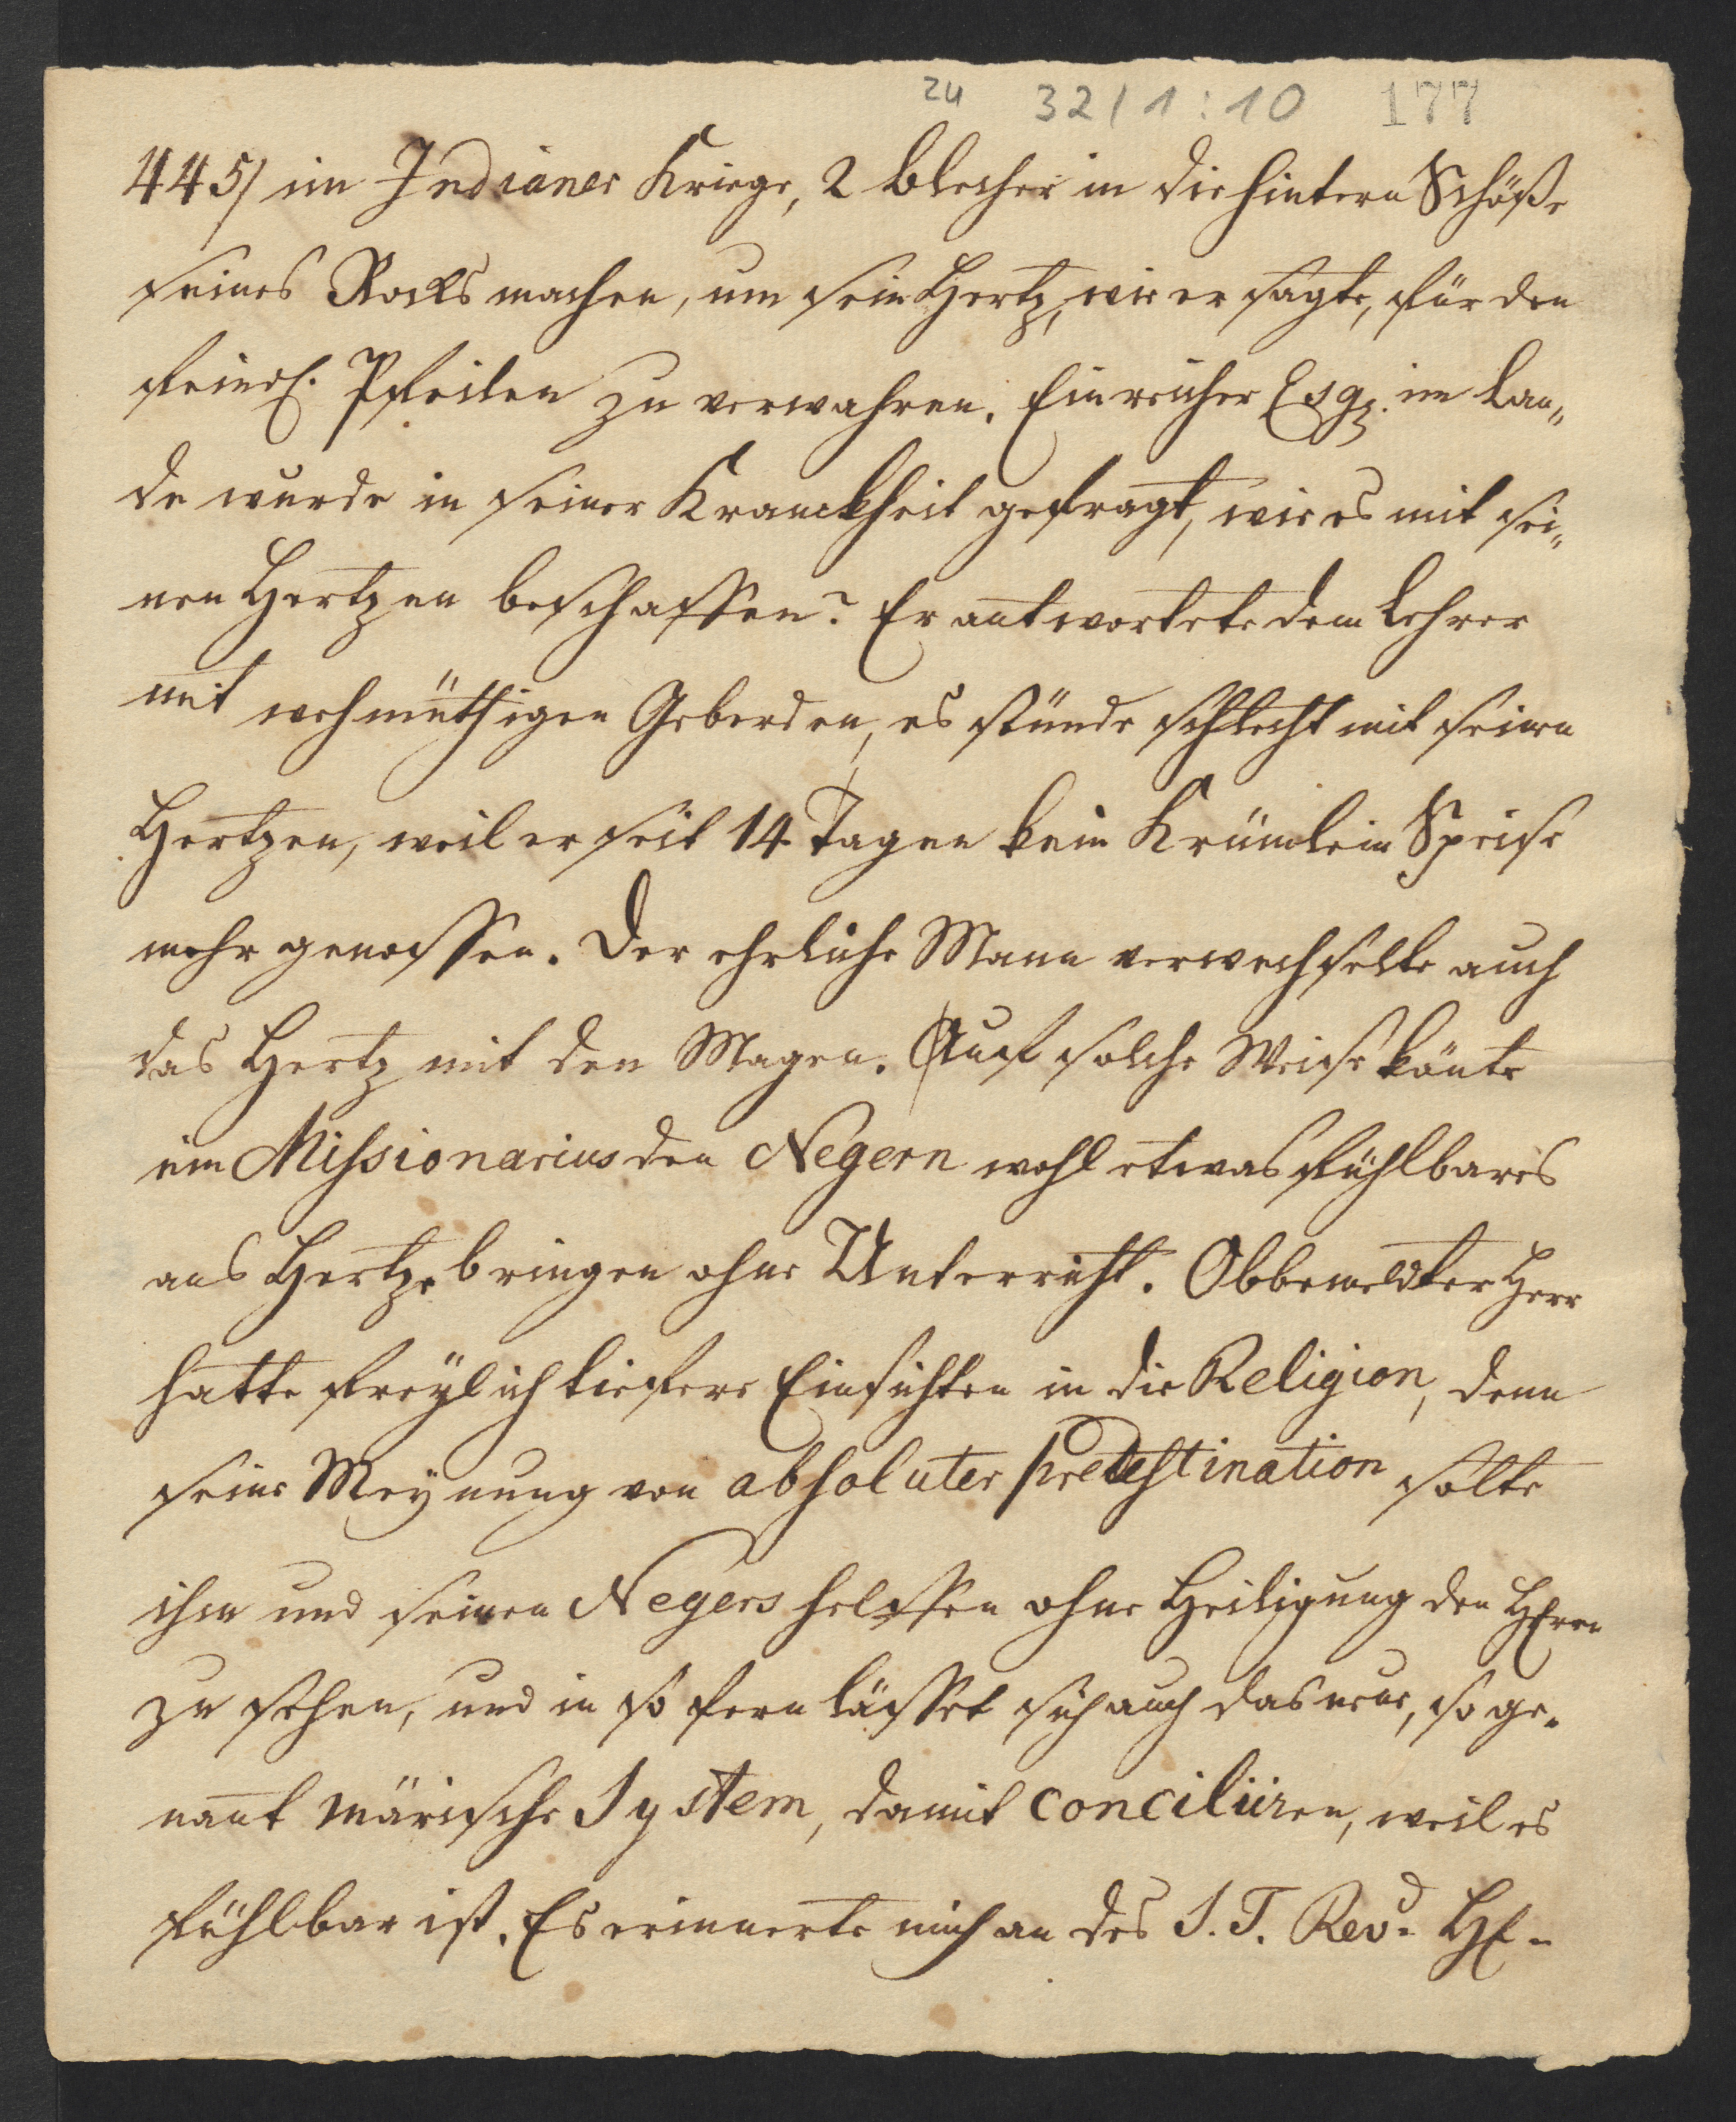 zu 32/1:10 177
445/ im Indianer Kriege, 2 Blecher in die hintern Schöße
seines Rocks machen, um sein Hertz, wie er sagte, für den
feindl. Pfeilen zu verwahren. Ein reicher Esqr. im Lan„
de wurde in seiner Kranckheit gefragt, wie es mit sei„
nen Hertzen beschaffen? Er antwortete dem Lehrer
mit wehmüthigen Geberden, es stünde schlecht mit seinen
Hertzen, weil er seit 14 Tagen kein Krümlein Speise
mehr genossen. Der ehrliche Mann verwechselte auch
das Hertz mit den Magen. Auf solche Weise könte
ein Missionarius den Negern wohl etwas fühlbares
ans Hertze bringen ohne Unterricht. Obbemeldter Herr
hatte freÿlich tiefere Einsichten in die Religion, denn
seine Meÿnung von absoluter predestination solte
ihm und seinen Negers helffen ohne Heiligung den HErrn
zu sehen, und in so fern lässet sich auch das neue, so ge„
nant märische System, damit conciliiren, weil es
fühlbar ist. Es erinnerte mich an des S. T. Revd. HE„